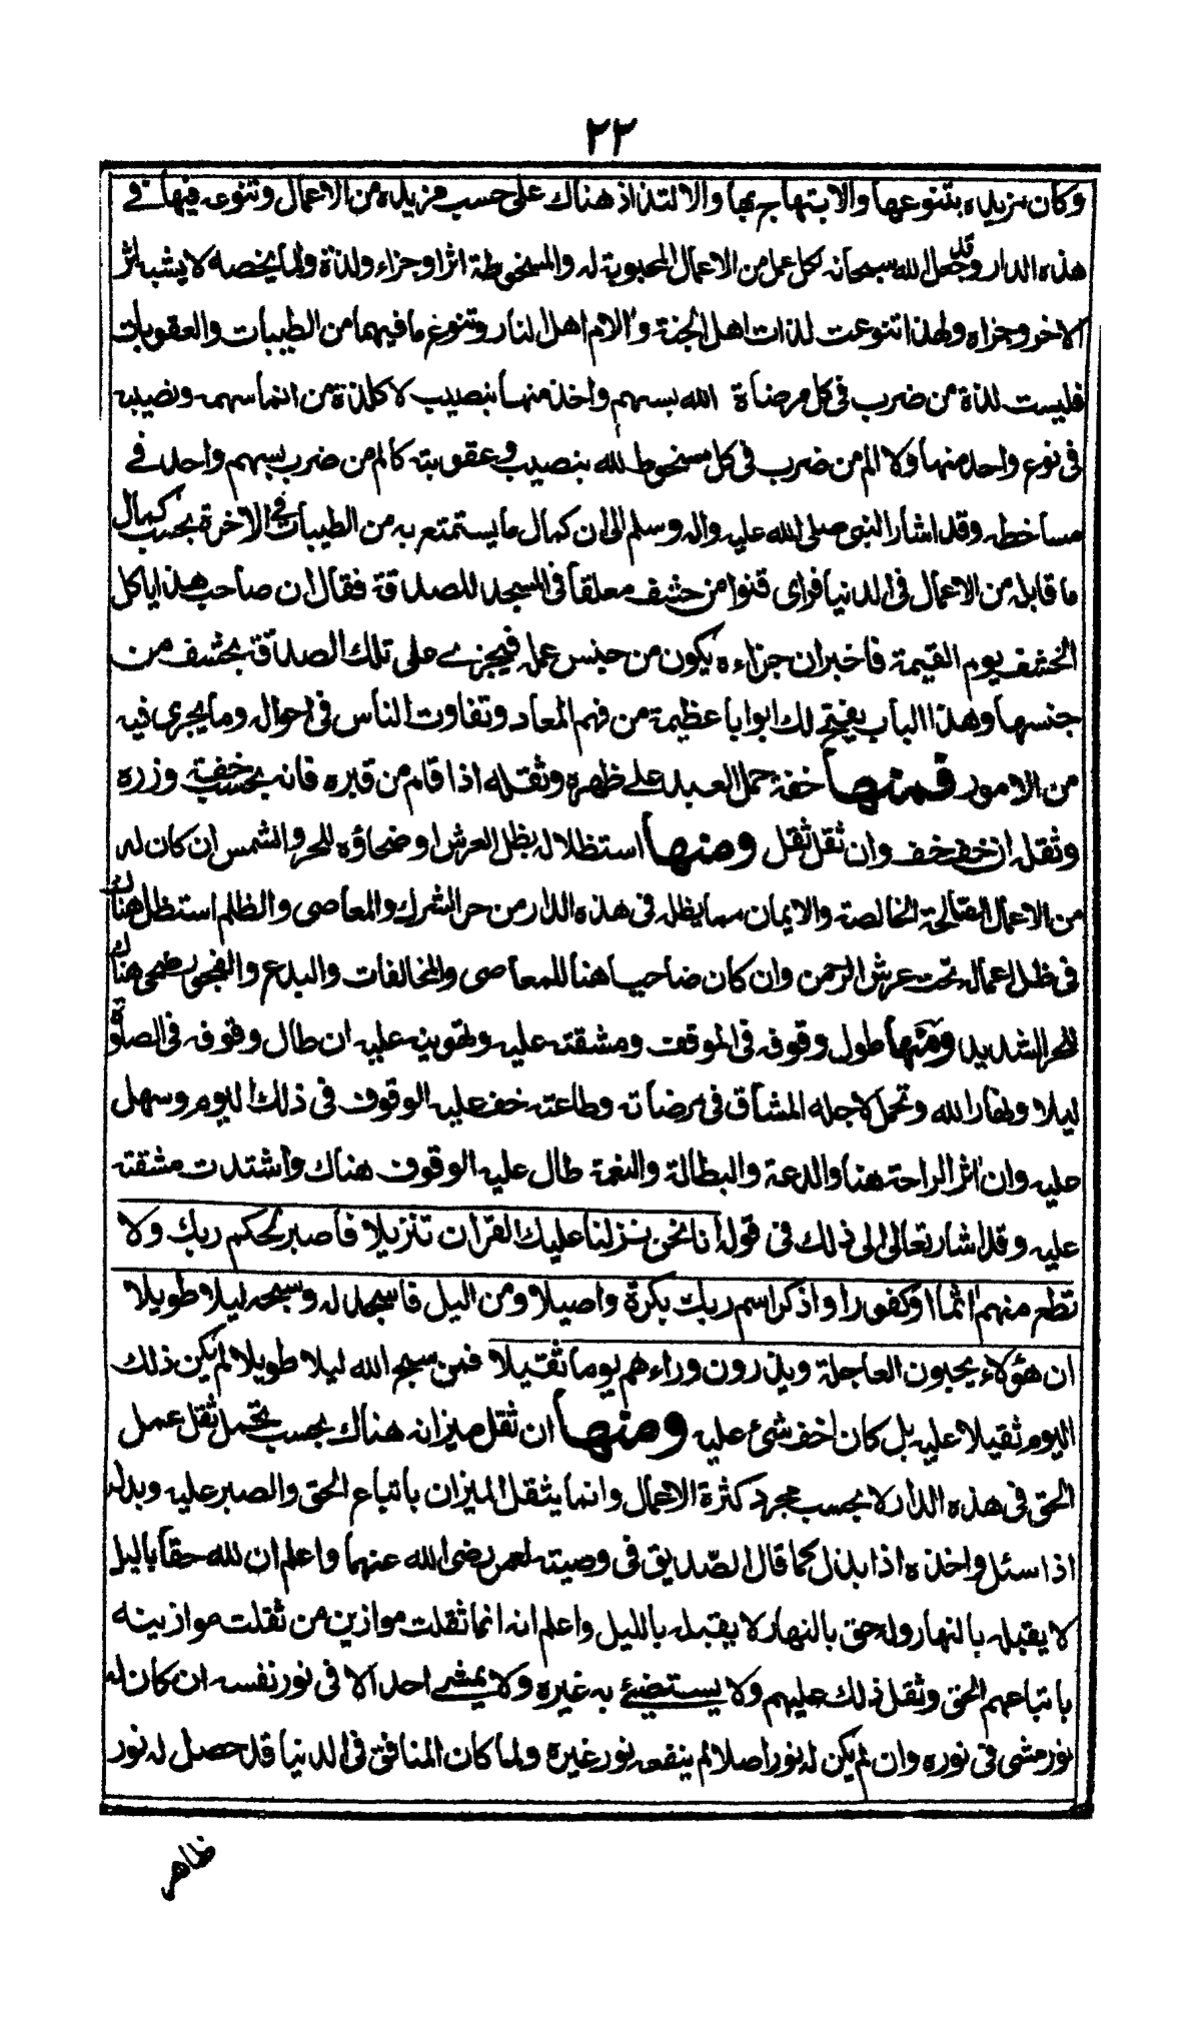 ٢٢
وكان مزيده بتنوعها والابتهاج بها والالتذاذ هناك على حسب مزيده من الاعمال وتنوعه فيها في
هذه الدار وقد جعل الله سبحانه لكل عمل من الاعمال المحبوبة له والمسخوطة اثرا وجزاء ولذة والما يخصه لا يشبه اثر
الاخر وجزاه ولهذا تنوعت لذات اهل الجنة والام اهل النار وتنوع ما فيهما من الطيبات والعقوبات
فليست لذة من ضرب فى كل مرضاة الله بسهم واخذ منها بنصيب لا كلذة من انما سهمه ونصيبه
فى نوع واحد منها ولا الم من ضرب فى كل مسخوط لله بنصيب وعقوبته كالم من ضرب بسهم واحد في
مساخطه وقد اشار النبى صلى الله عليه واله وسلم الى ان كمال ما يستمتع به من الطيبات فى الاخرة بحسب كمال
ما قابله من الاعمال فى الدنيا فراى قنوا من حشف معلقا فى المسجد للصدقة فقال ان صاحب هذا ياكل
الحشف يوم القيمة فاخبر ان جزاءه يكون من جنس عمله فيجزے على تلك الصدقة بحشف من
جنسها وهذا الباب يفتح لك ابوابا عظيمة من فهم المعاد وتفاوت الناس فى احواله وما يجرى فيه
من الامور فمنها خفة حمل العبد على ظهره وثقله اذا قام من قبره فانه بحسب خفة وزره
وثقله ان خف خف وان ثقل ثقل ومنها استظلاله بظل العرش او ضحاؤه للحر والشمس ان كان له
من الاعمال الصالحة الخالصة والايمان مما يظله فى هذه الدار من حر الشرك والمعاصى والظلم استظل هناك
فى ظل اعماله تحت عرش الرحمن وان كان ضاحيا هنا للمعاصى والمخالفات والبدع والفجور ضحى هناك
للحر الشديد ومنها طول وقوفه فى الموقف ومشقته عليه وتهوينه عليه ان طال وقوفه فى الصلوة
ليلا ونهارا لله وتحمل لاجله المشاق فى مرضاته وطاعته خف عليه الوقوف فى ذلك اليوم وسهل
عليه وان اثر الراحة هنا والدعة والبطالة والنعمة طال عليه الوقوف هناك واشتدت مشقته
عليه وقد اشار تعالى الى ذلك فى قوله انا نحن نزلنا عليك القران تنزيلا فاصبر لحكم ربك ولا
تطع منهم اثما او كفورا واذكر اسم ربك بكرة واصيلا ومن اليل فاسجد له وسبحه ليلا طويلا
ان هؤلاء يحبون العاجلة ويذرون وراءهم يوما ثقيلا فمن سبح الله ليلا طويلا لم يكن ذلك
اليوم ثقيلا عليه بل كان اخف شئ عليه ومنها ان ثقل ميزانه هناك بحسب تحمل ثقل عمل
الحق فى هذه الدار لا بحسب مجرد كثرة الاعمال وانما يثقل الميزان باتباع الحق والصبر عليه وبذله
اذا سئل واخذه اذا بذل كما قال الصديق فى وصيته لعمر رضى الله عنهما واعلم ان لله حقا باليل
لا يقبله بالنهار وله حق بالنهار لا يقبله بالليل واعلم انه انما ثقلت موازين من ثقلت موازينه
باتباعهم الحق وثقل ذلك عليهم ولا يستضئ به غيره ولا يمشے احد الا فى نور نفسه ان كان له
نور مشى فى نوره وان لم يكن له نور اصلا لم ينفعه نور غيره ولما كان المنافق فى الدنيا قد حصل له نور
ظاهر